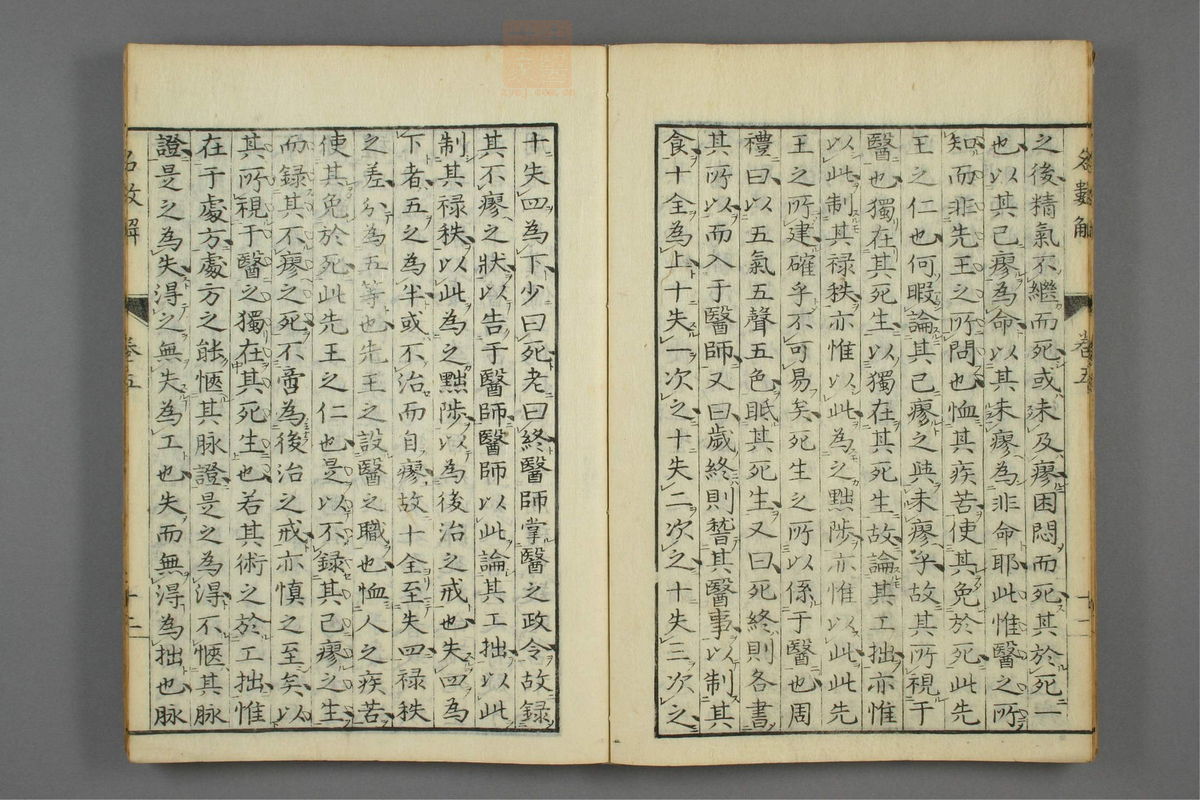 名數解 卷五 十一
之後精氣不繼而死或未及瘳困悶而死其於死一
也以其已瘳為命以其未瘳為非命耶此惟醫之所
知而非先王之所問也恤其疾苦使其免於死此先
王之仁也何暇論其已瘳之與未瘳乎故其所視于
醫也獨在其死生以獨在其死生故論其工拙亦惟
以此制其祿秩亦惟以此為之黜陟亦惟以此此先
王之所建確乎不可易矣死生之所以係于醫也周
禮曰以五氣五聲五色眡其死生又曰死終則各書
其所以而入于醫師又曰歲終則稽其醫事以制其
食十全為上十失一次之十失二次之十失三次之
十失四為下少曰死老曰終醫師掌醫之政令故録
其不瘳之狀以告于醫師醫師以此論其工拙以此
制其禄秩以此為之黜陟以為後治之戒也失四為
下者五之為半或不治而自瘳故十全至失四禄秩
之差分為五等也先王之設醫之職也恤人之疾苦
使其免於死此先王之仁也是以不録其已瘳之生
而録其不瘳之死不啻為後治之戒亦慎之至矣以
其所視于醫之獨在其死生也若其術之於工拙惟
在于處方處方之能愜其脉證是之為得不愜其脉
證是之為失得之無失為工也失而無得為拙也脉
名數解 卷五 十二